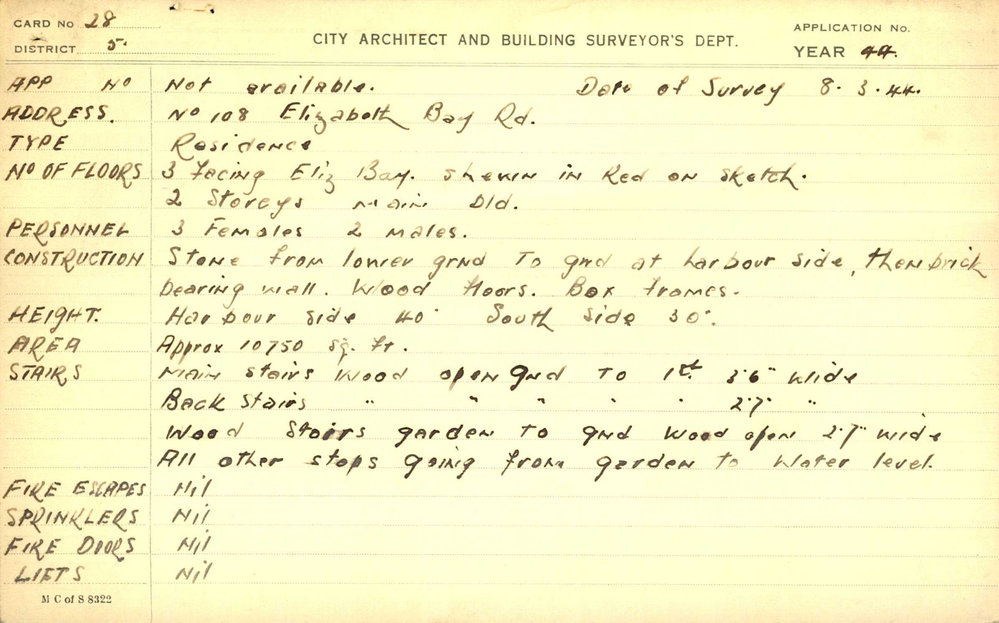 CARD No 28
DISTRICT 5
CITY ARCHITECT AND BUILDING SURVEYOR'S DEPT.
APPLICATION No.
YEAR 44.
APP No Not available. Date of Survey 8. 3. 44.
ADDRESS. No 108 Elizabeth Bay Rd.
TYPE Residence
No OF FLOORS 3 facing Eliz Bay. shewn in Red on sketch.
2 Storeys main bld.
PERSONNEL 3 Females 2 males.
CONSTRUCTION Stone from lower grnd To gnd at harbour side, then brick
bearing wall. Wood floors. Box frames.
HEIGHT. Harbour side 40' South side 30'.
AREA Approx 10750 sq. ft.
STAIRS Main stairs Wood open gnd To 1st 3'6" wide
Back Stairs " " " " " 2'7" "
Wood Stairs garden To gnd Wood open 2'7" wide
All other steps going from garden to water level.
FIRE ESCAPES Nil
SPRINKLERS Nil
FIRE DOORS Nil
LIFTS Nil
M C of S 8322